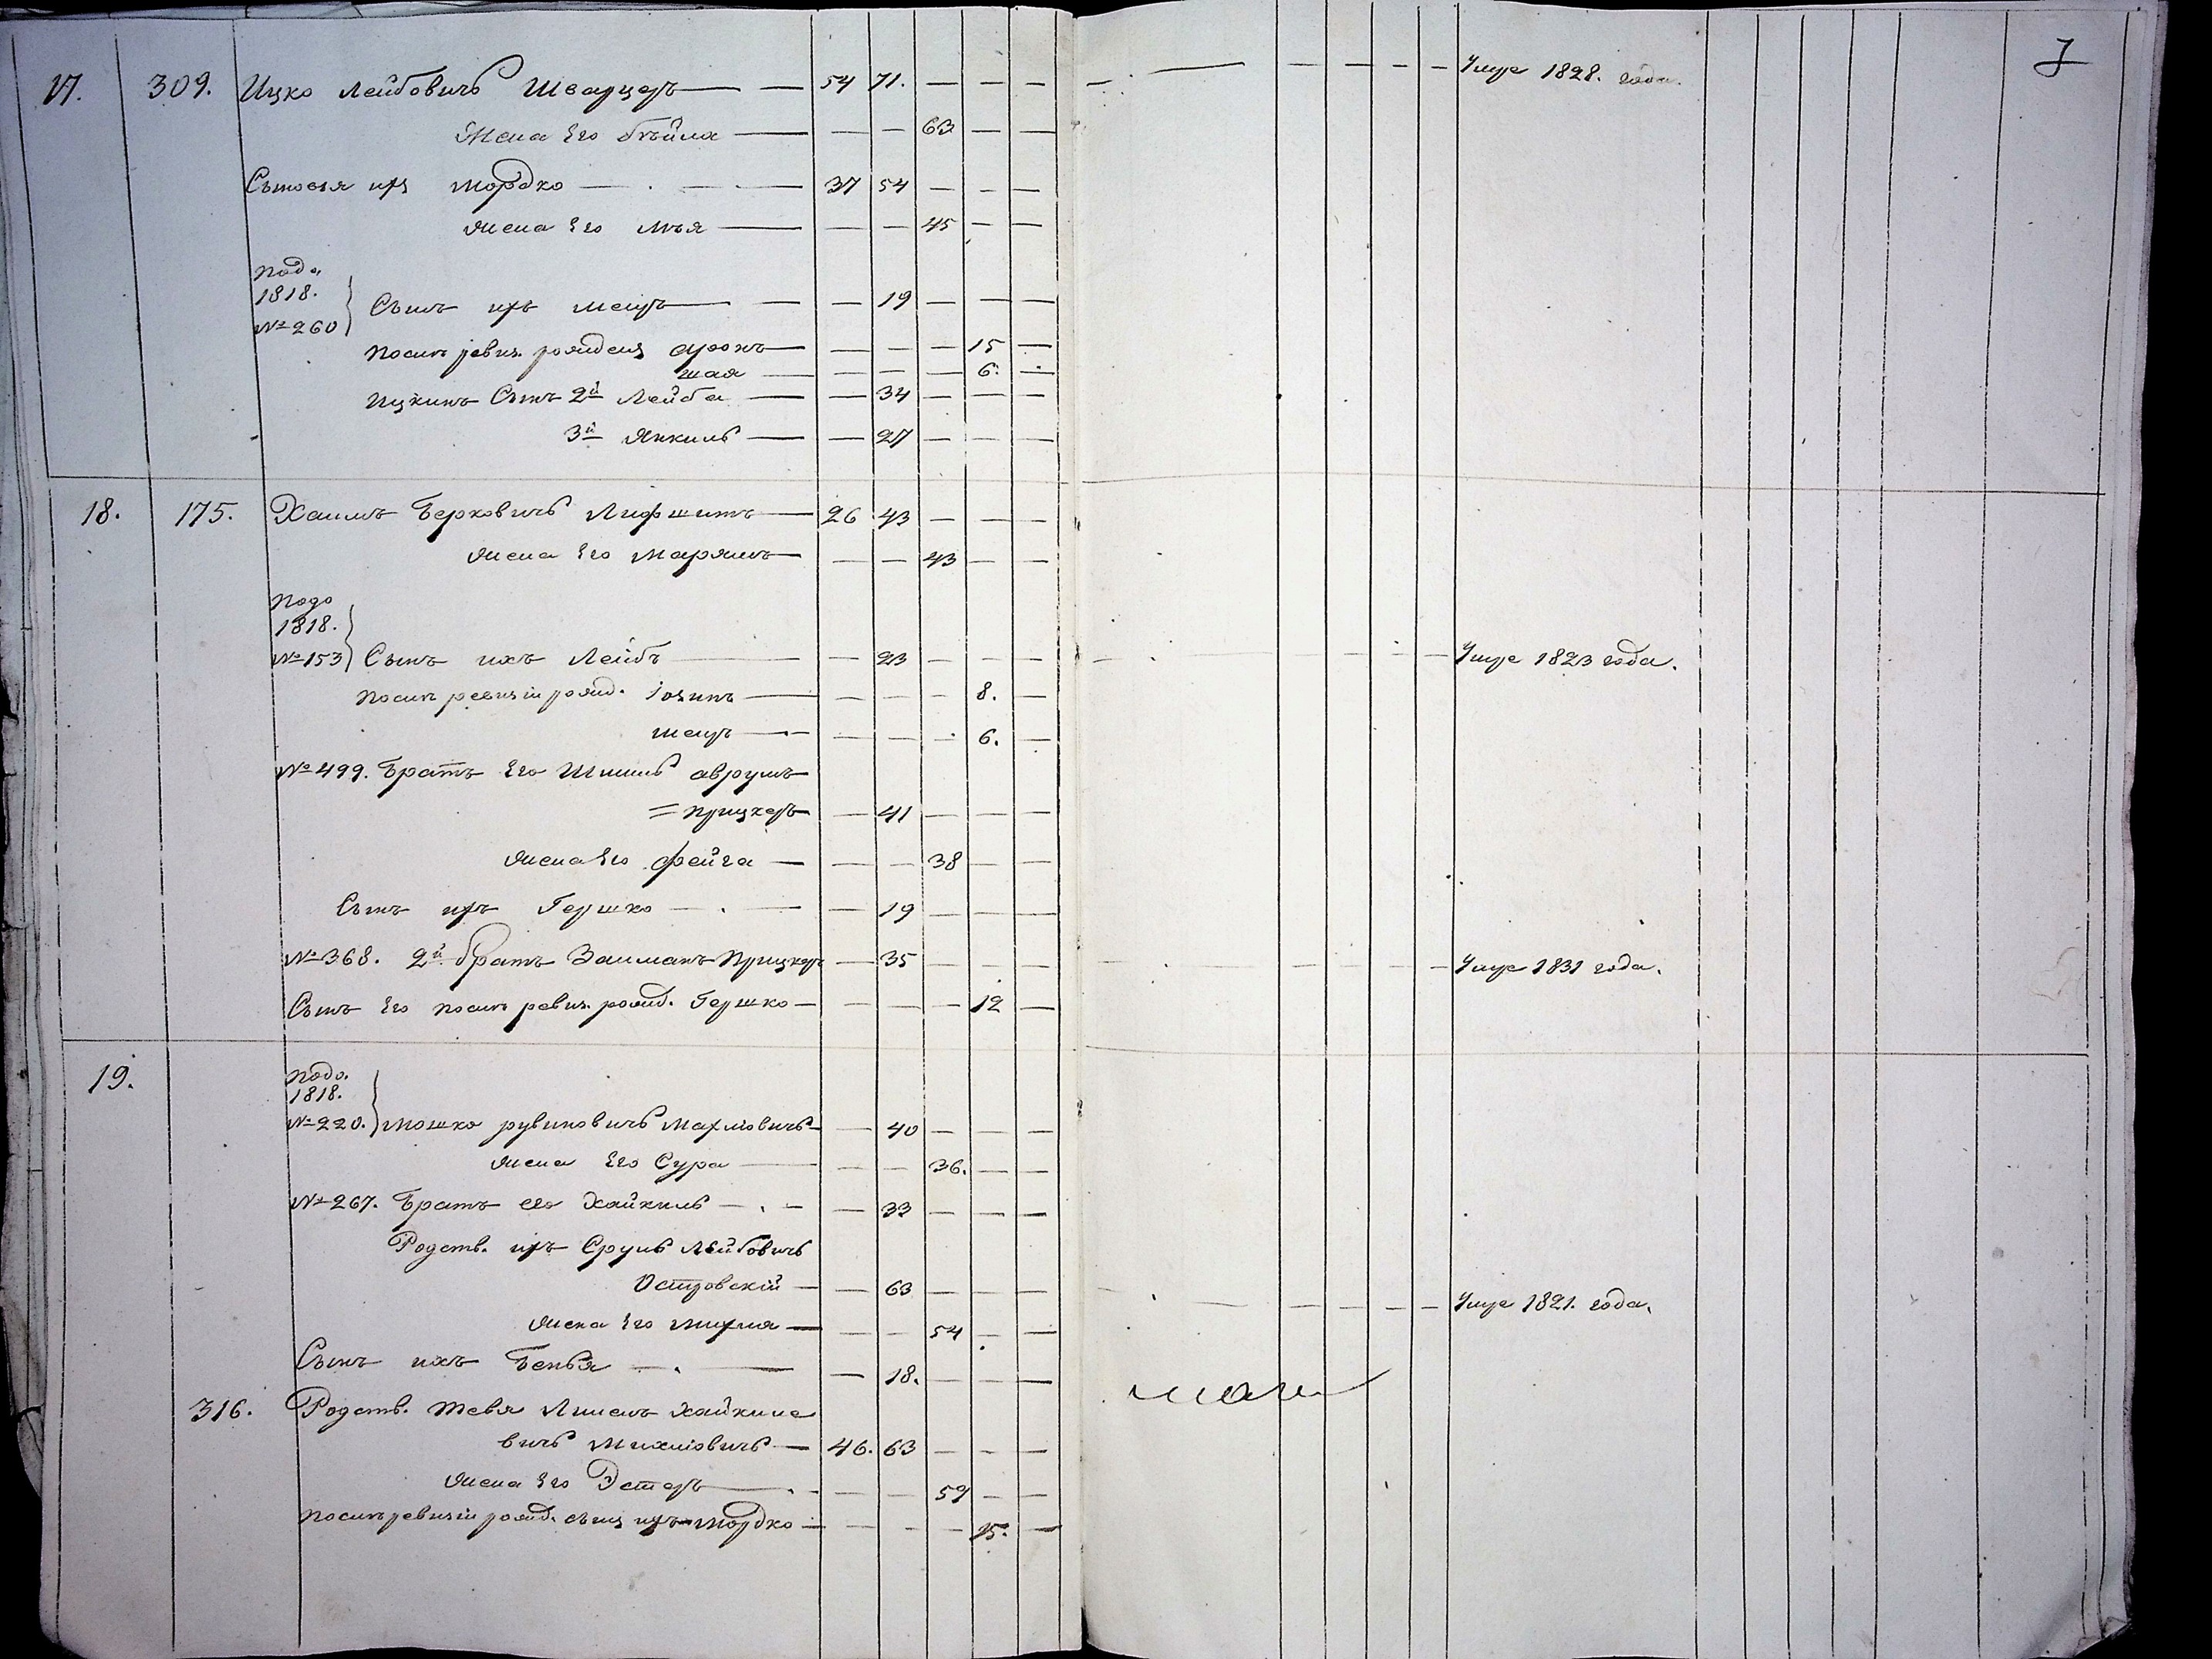 17. 309. Ицко Лейбовичъ Шварцеръ — — 54 71. — — — — — — — — Умре 1828. года. 7
Жена Его Бѣйла — — — 63 — —
Сыновья ихъ Мордко — — — 37 54 — — —
Жена Его — — — 45 — —
Подо.
1818.
№ 260 Сынъ ихъ Меиръ — — — 19 — — —
Послѣ ревиз. рожденъ Аронъ — — — — 15 —
Шая — — — — 6. —
Ицкинъ Сынъ 2й Лейба — — 34 — — —
3й Янкиль — — 27 — — —
18. 175. Хаимъ Берковичъ Лифшитъ — 26 43 — — —
Жена Его Марямъ — — — 43 — —
Подо
1818.
№ 153 Сынъ ихъ Лейбъ — — 23 — — — — — Умре 1823 года.
Послѣ ревизіи рожд. — — — — 8. —
Меиръ — — — — 6. —
№ 499. Братъ Его Шмиль Аврумъ
= Прицкеръ — 41 — — —
Жена Его Фейга — — — 38 — —
Сынъ ихъ Гершко — — — 19 — — —
№ 368. 2й братъ Займанъ Прицкеръ — 35 — — — — — — Умре 1831 года.
Сынъ Его послѣ ревиз. рожд. Гершко — — — — 12 —
19. Подо.
1818.
№ 220. Мошко Рувиновичъ Махліовичъ — — 40 — — —
Жена Его Сура — — — 36. — —
№ 267. Братъ его Хайкиль — — — 33 — — —
Родств. ихъ Сруль Лейбовичъ
Островскій — — 63 — — — — — — — — Умре 1821. года.
Жена Его — — — 54 — —
Сынъ ихъ Бенья — — — 18. — — —
316. Родств. Тевя Хайкиле
вичъ Михліовичъ — 46. 63 — — —
Жена Его Эстеръ — — — 59 — —
Послѣ ревизіи рожд. сынъ ихъ Мордко — — — — 15. —